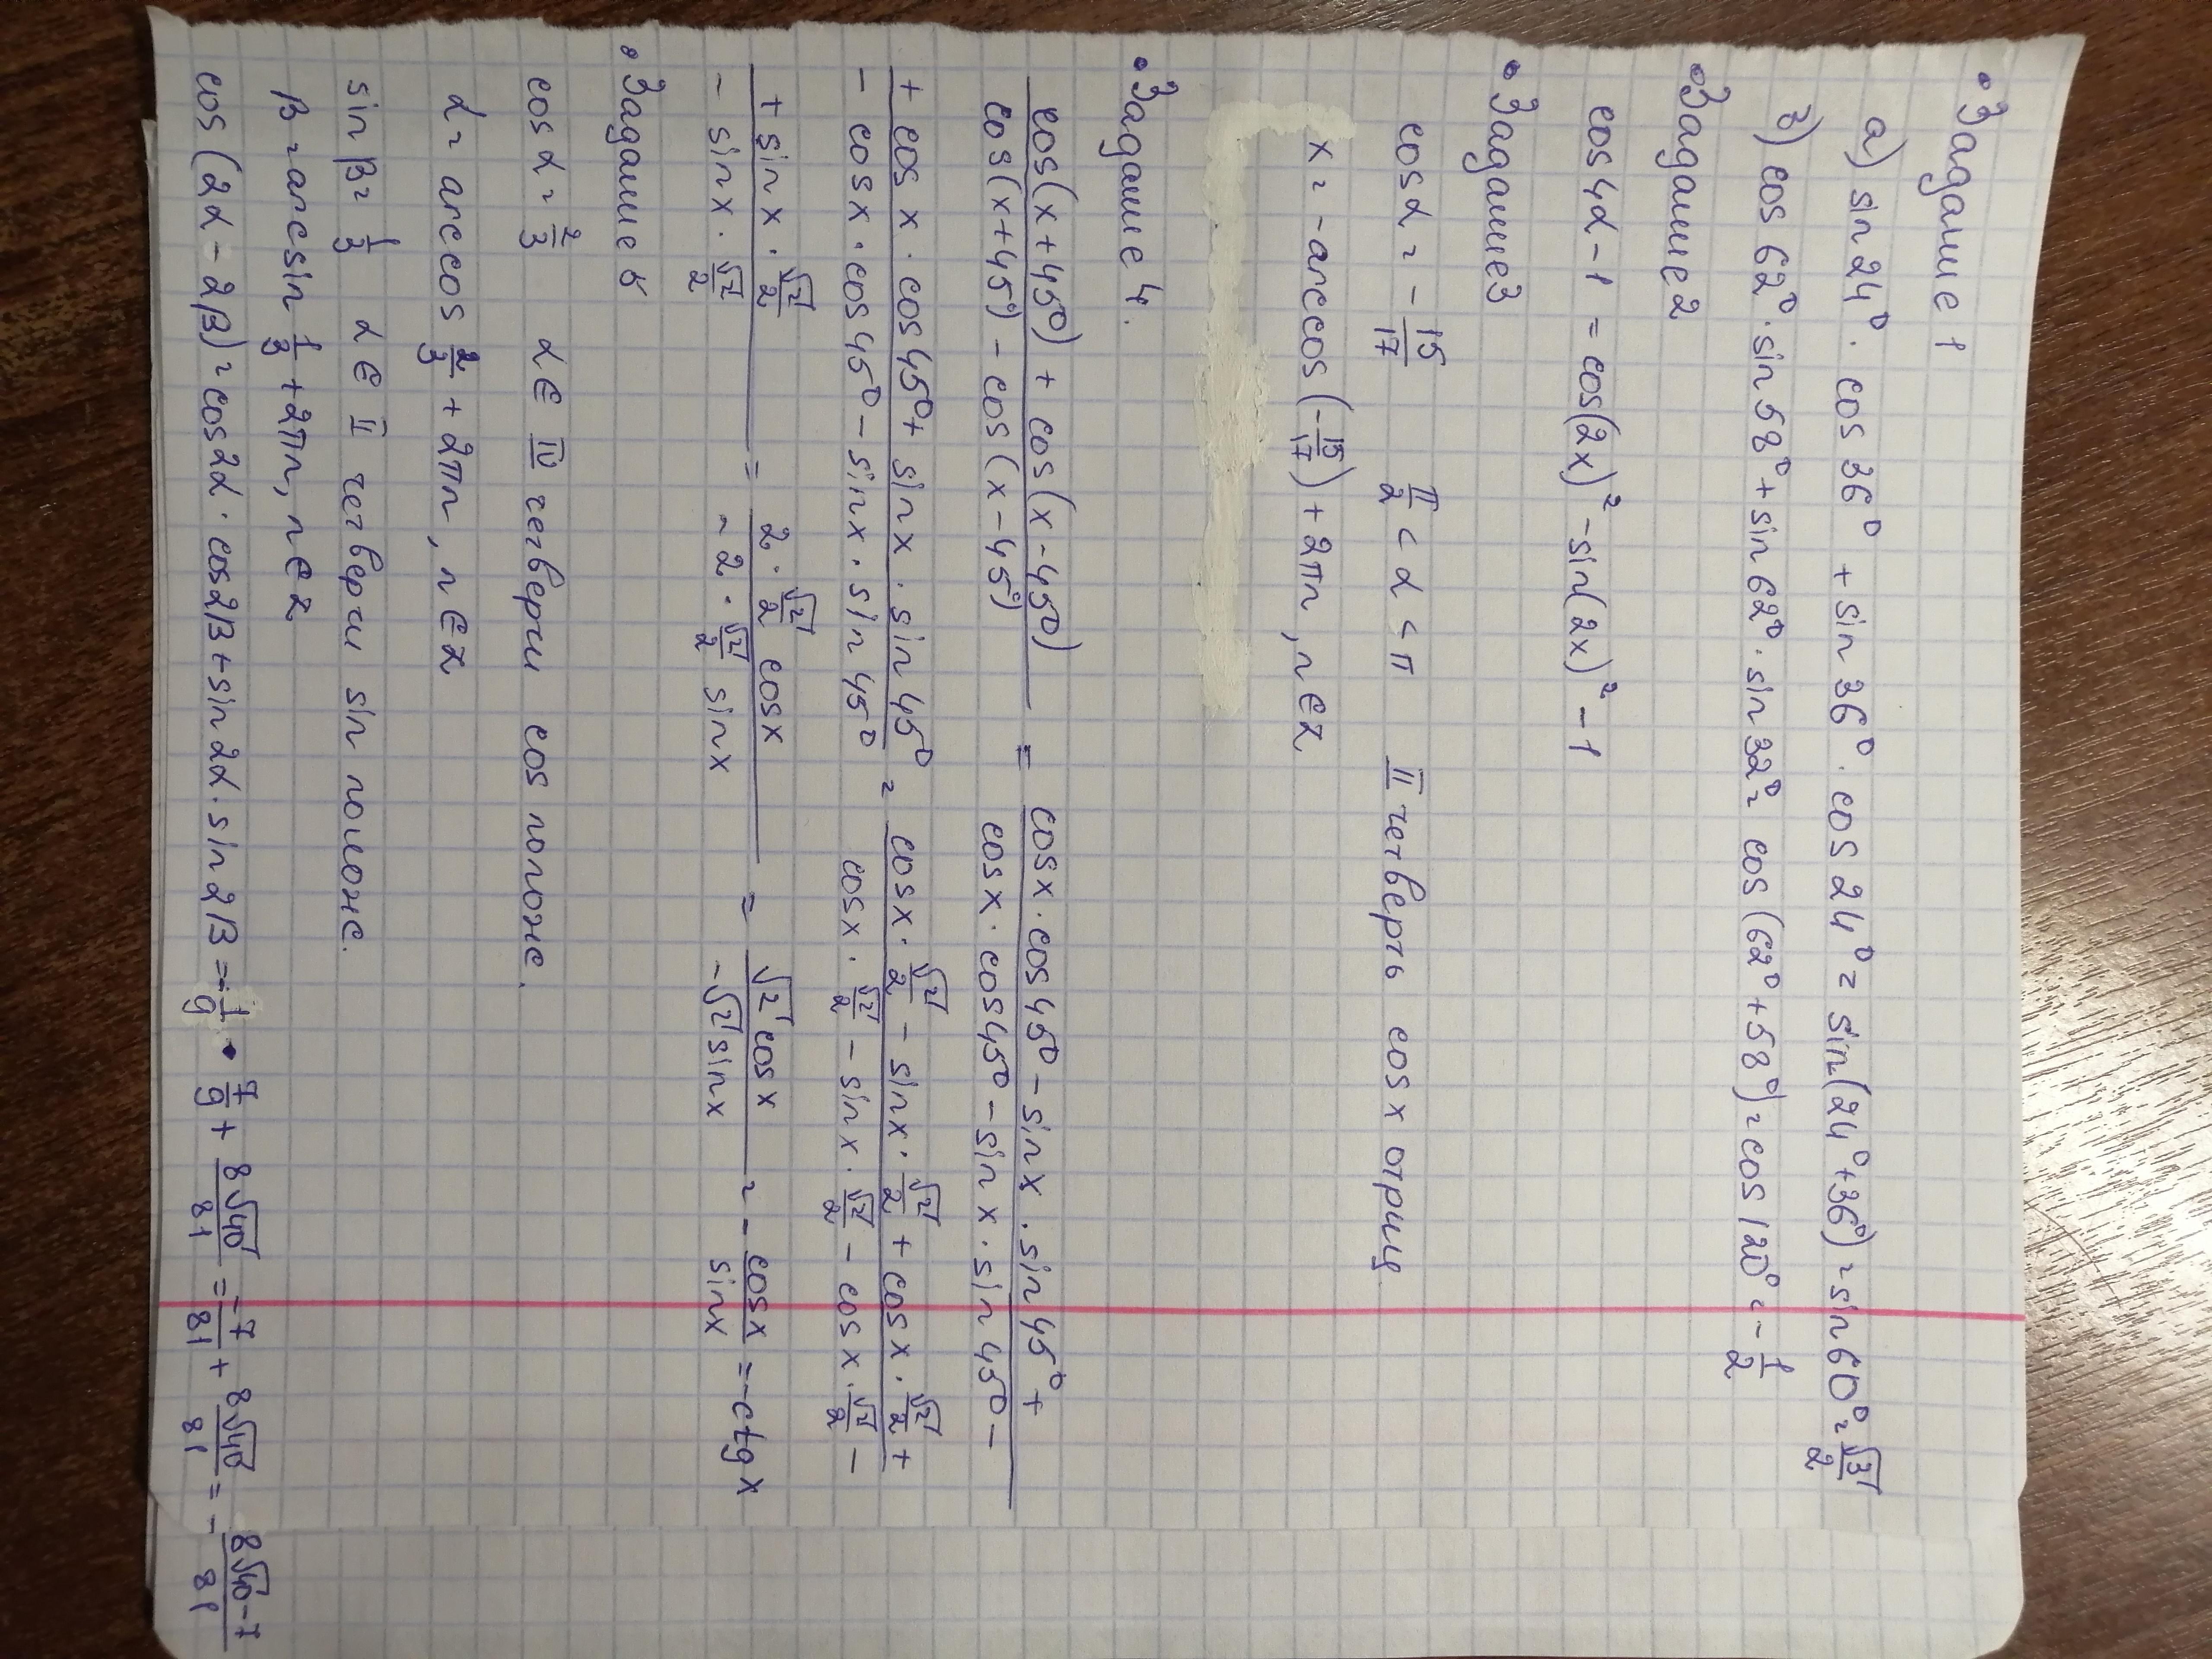 • Задание 1
а) sin 24° · cos 36° + sin 36° · cos 24° = sin(24° + 36°) = sin 60° = √3/2
в) cos 62° · sin 58° + sin 62° · sin 32° = cos (62° + 58°) = cos 120° = - 1/2
• Задание 2
cos 4α - 1 = cos(2x)² - sin(2x)² - 1
• Задание 3
cos α = - 15/17 π/2 < α < π II четверть cos x отриц.
x = - arccos (- 15/17) + 2πn, n ∈ z
• Задание 4.
(cos(x + 45°) + cos(x - 45°)) / (cos(x + 45°) - cos(x - 45°)) = (cos x · cos 45° - sin x · sin 45° +) / (cos x · cos 45° - sin x · sin 45° -)
(+ cos x · cos 45° + sin x · sin 45°) / (- cos x · cos 45° - sin x · sin 45°) = (cos x · √2/2 - sin x · √2/2 + cos x · √2/2 +) / (cos x · √2/2 - sin x · √2/2 - cos x · √2/2 -)
(+ sin x · √2/2) / (- sin x · √2/2) = (2 · √2/2 cos x) / (- 2 · √2/2 sin x) = (√2 cos x) / (- √2 sin x) = - cos x / sin x = - ctg x
• Задание 5
cos α = 2/3 α ∈ IV четверти cos положе.
α = arccos 2/3 + 2πn, n ∈ z
sin β = 1/3 α ∈ II четверти sin положе.
β = arcsin 1/3 + 2πn, n ∈ z
cos (2α - 2β) = cos 2α · cos 2β + sin 2α · sin 2β = - 1/9 · 7/9 + 8√40/81 = -7/81 + 8√40/81 = - (8√40 - 7)/81